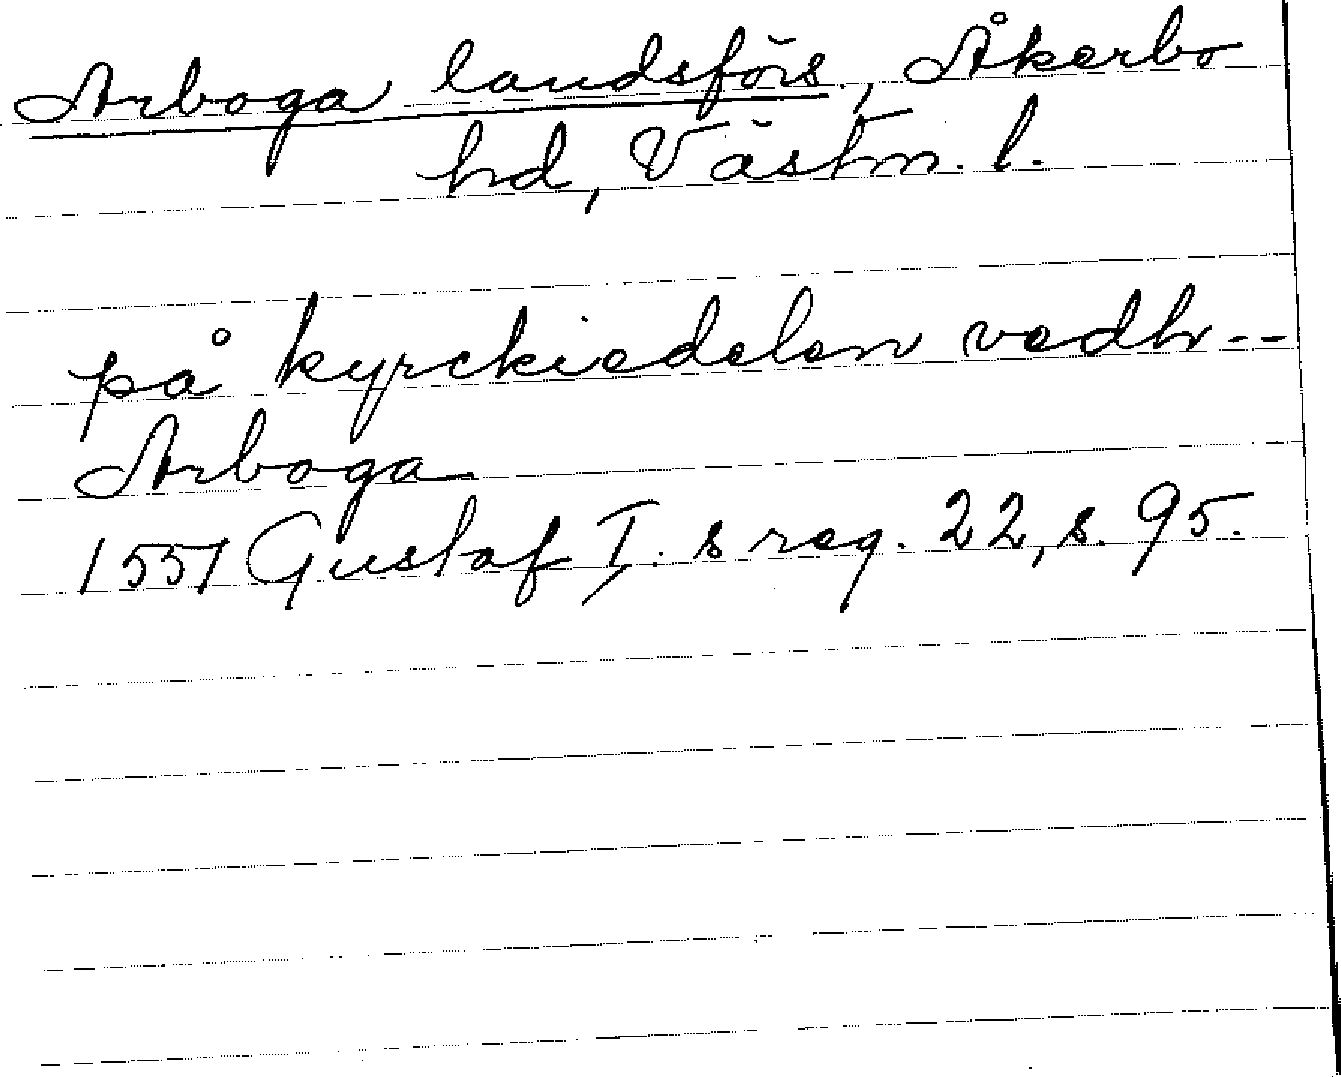 Arboga landsförs, Åkerbo
hd, Västm. l.
på kyrckiedelen vedh --
Arboga
1551 Gustaf I. s reg. 22, s. 95.